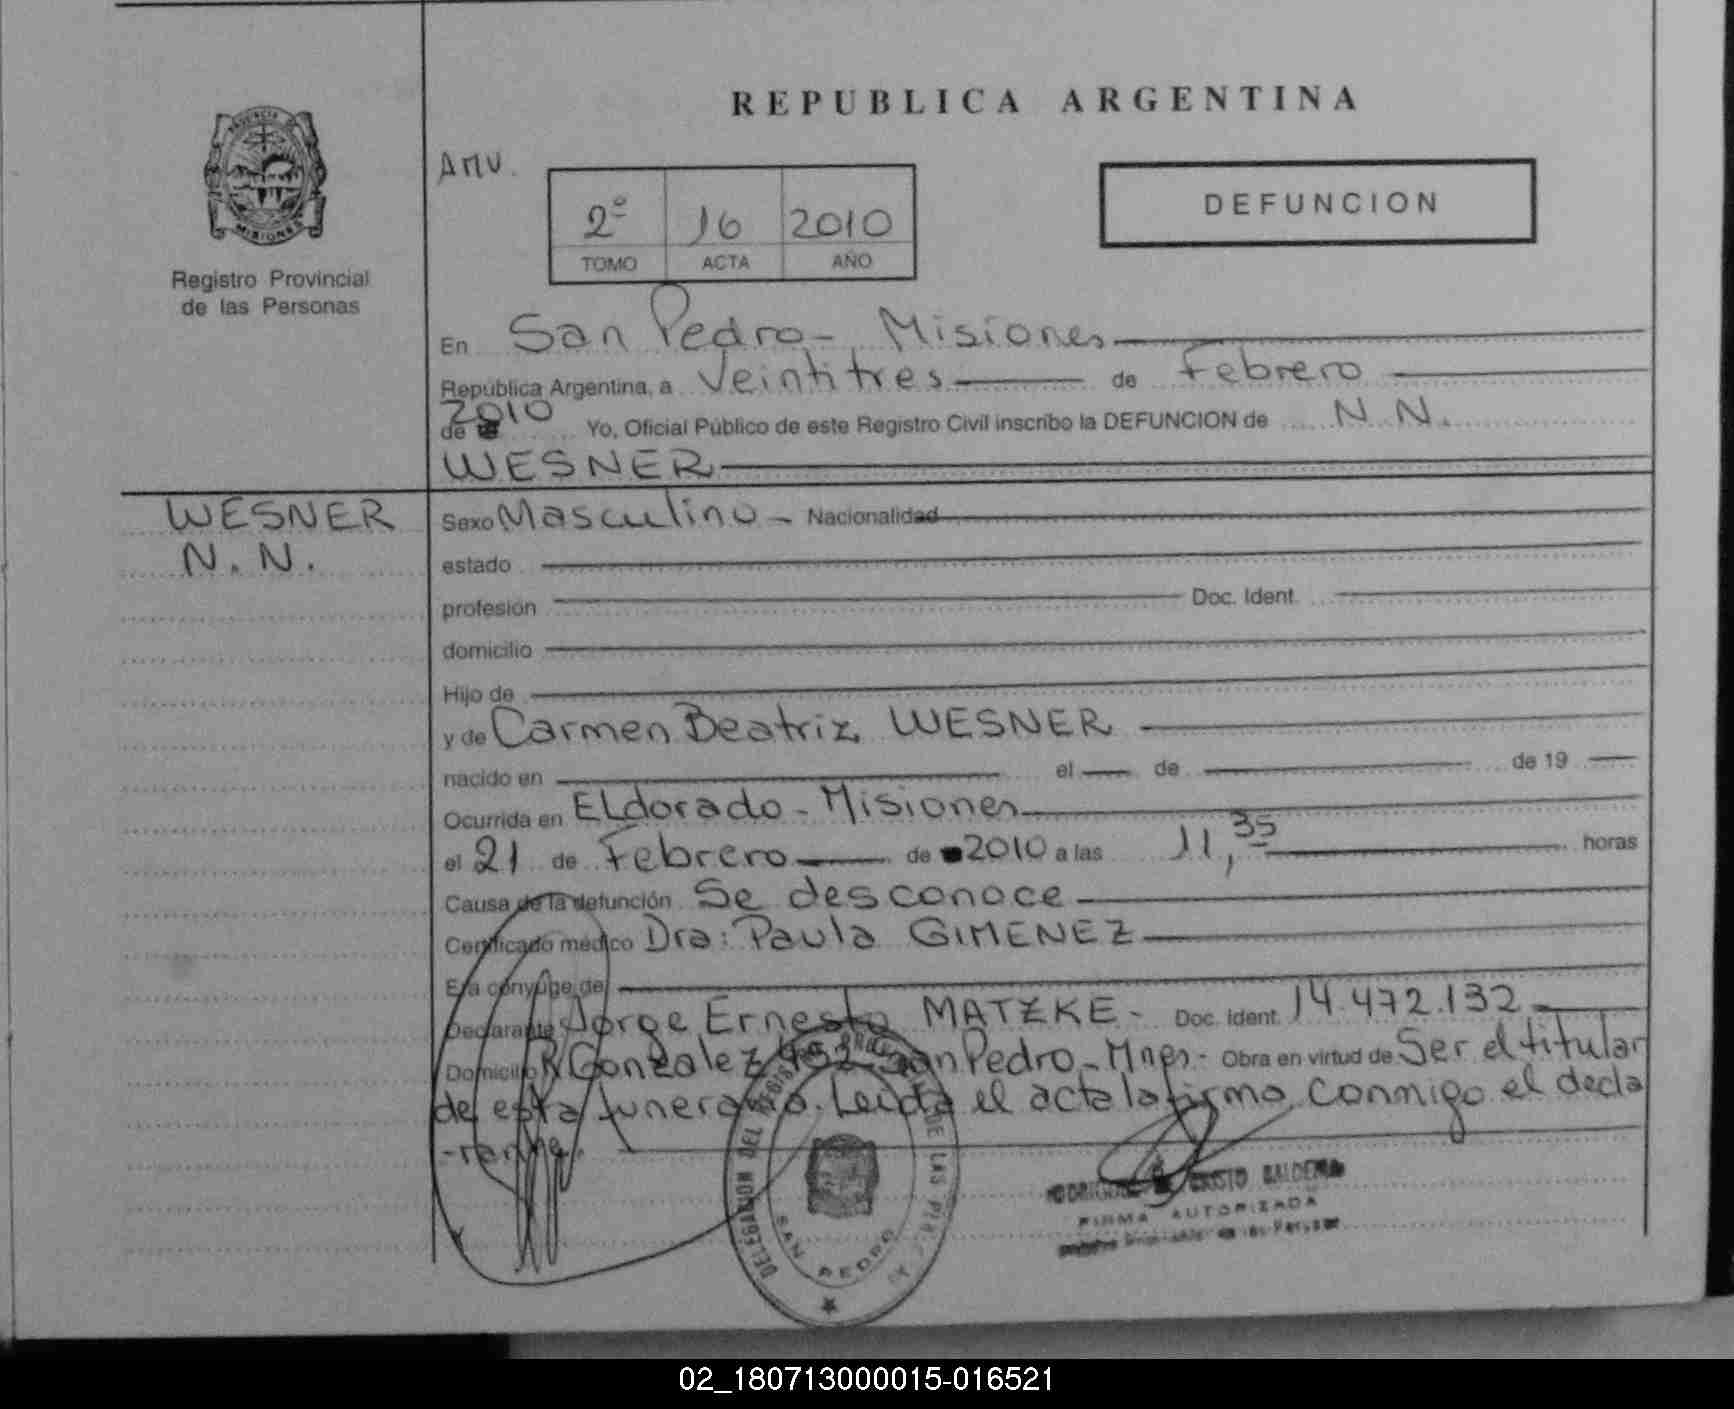 REPUBLICA ARGENTINA
PROVINCIA DE
MISIONES
Registro Provincial
de las Personas
Anv.
2º 16 2010
TOMO ACTA AÑO
DEFUNCION
En San Pedro - Misiones
República Argentina, a Veintitres de Febrero
de 2010 Yo, Oficial Público de este Registro Civil inscribo la DEFUNCION de N. N.
WESNER
WESNER
N. N.
Sexo Masculino - Nacionalidad
estado
profesión Doc. Ident.
domicilio
Hijo de
y de Carmen Beatriz WESNER
nacido en el de de 19
Ocurrida en ELdorado - Misiones
el 21 de Febrero de 2010 a las 11,35 horas
Causa de la defunción Se desconoce
Certificado médico Dra: Paula GIMENEZ
Era cónyuge de
Declarante Jorge Ernesto MATZKE - Doc. Ident. 14.472.132
Domicilio R Gonzalez San Pedro - Mnes - Obra en virtud de Ser el titular
de esta funeraria. Leida el acta la firma conmigo el decla
-rante.
DELEGACION DEL REGISTRO PROVINCIAL DE LAS
SAN PEDRO
FIRMA AUTORIZADA
02_180713000015-016521